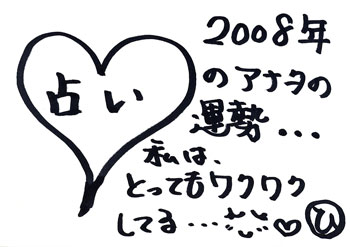 占い
2008年
のアナタの
運勢...
私は、
とってもワクワク
してる...
ひ